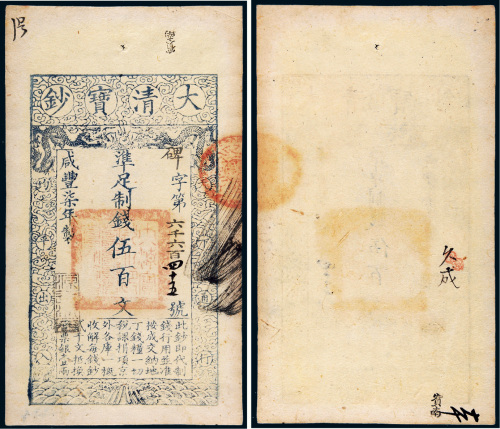 大清寶鈔
碑字第六千六百四十五號
準足制錢伍百文
咸豐柒年製
此鈔即代制
錢行用並准
按成交納地
丁錢糧一切
稅課捐項京
外各庫一槩
收解每錢鈔
貳千文抵換
官票銀壹兩
天下通行
均平出入
久成